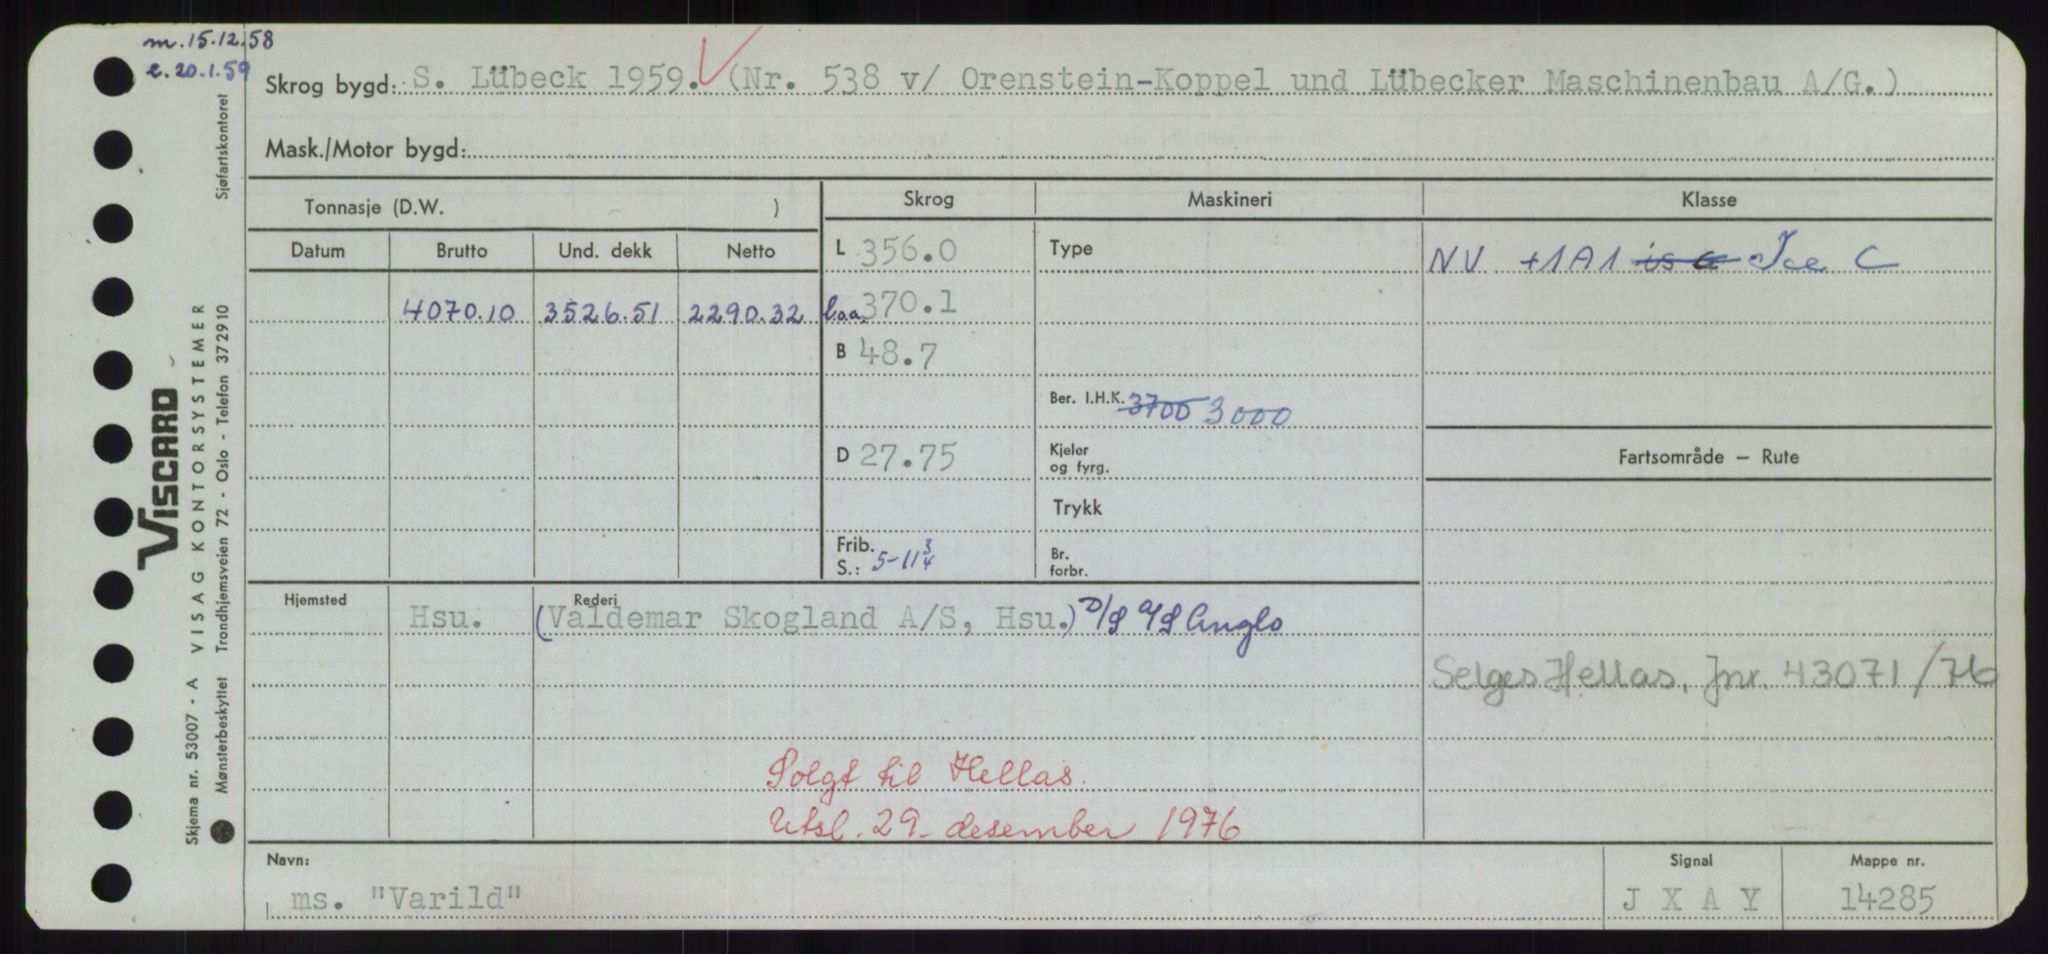 m. 15.12.58
e. 20.1.59
Skrog bygd: S. Lübeck 1959. (Nr. 538 v/ Orenstein-Koppel und Lübecker Maschinenbau A/G.)
Mask./Motor bygd:
Tonnasje (D.W. )
Skrog Maskineri Klasse
Datum Brutto Und. dekk Netto
L 356.0 Type NV +1A1 is C Ice C
4070.10 3526.51 2290.32 l.o.a. 370.1
B 48.7
Ber. I.H.K. 3700 3000
D 27.75 Kjeler og fyrg. Fartsområde – Rute
Trykk
Frib. S.: 5-11 3/4 Br. forbr.
Hjemsted Rederi
Hsu. (Valdemar Skogland A/S, Hsu.) D/S A/S Anglo
Selges Hellas, Jnr. 43071/76
Solgt til Hellas.
Utsl. 29. desember 1976
Navn: Signal Mappe nr.
ms. "Varild" J X A Y 14285
Sjøfartskontoret
VISCARD
VISAG KONTORSYSTEMER
Trondhjemsveien 72 - Oslo - Telefon 372910
Skjema nr. 53007 - A
Mønsterbeskyttet